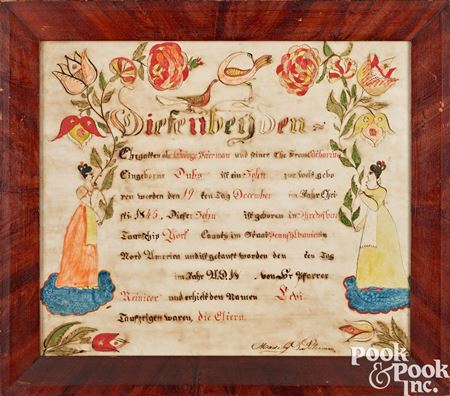 Diesenbeyden
Ehegatten als George Peterman und seiner Ehe Frau Catharina
Eingeborne Duby ist ein Sohn zur welt gebo
ren worden den 19 ten Tag December im Jahr Chri
sti 1845. Dieser Sohn ist geboren in
Taunschip York Caunty im Staat Pennsylvanien
Nord America und ist getauft worden den ten Tag
im Jahr A.D. 18 von Hr Pfarrer
Reinicer und erhielt den Namen Levi.
Taufzeigen waren, die Eltern.
Made by D. Peterman
POOK
& POOK
INC.